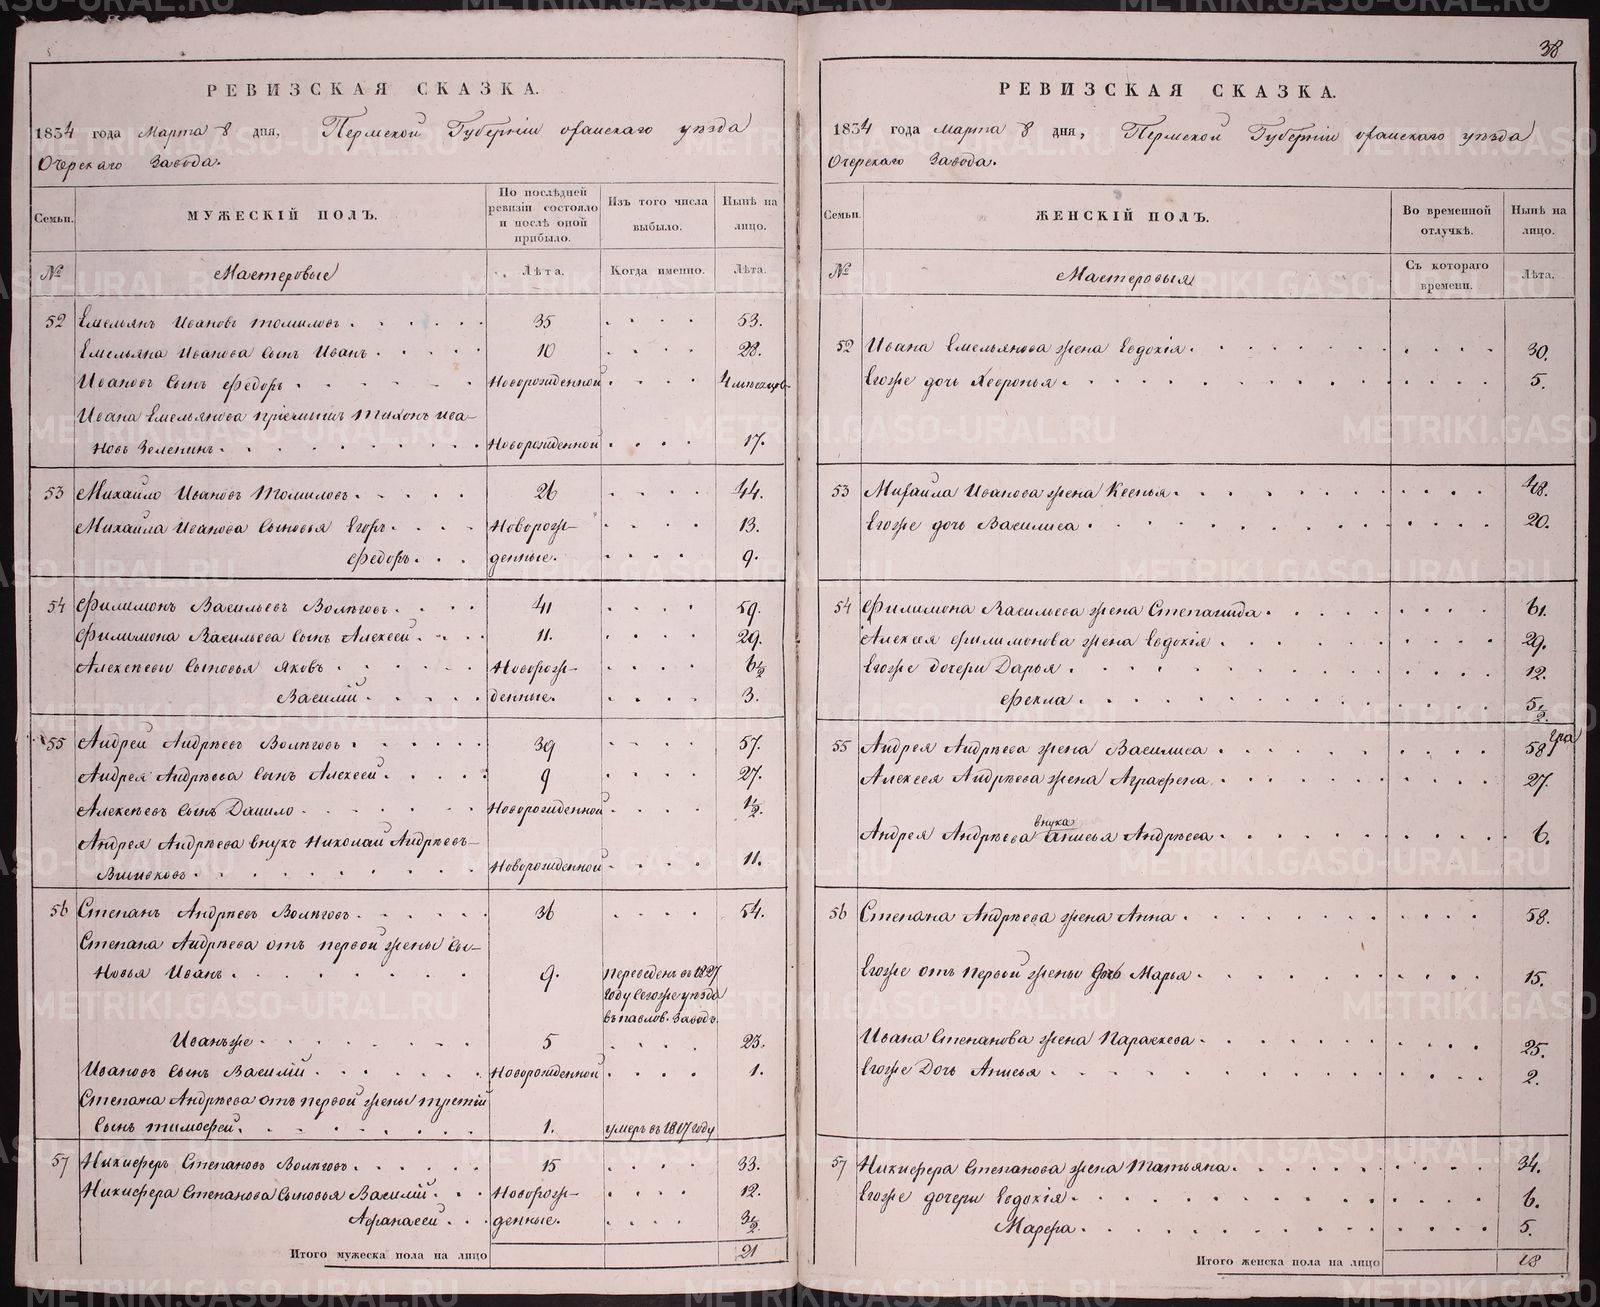 38
РЕВИЗСКАЯ СКАЗКА.
1834 года Марта 8 дня, Пермской Губерніи оханскаго уѣзда
Очерскаго Завода.
Семьи.
МУЖЕСКІЙ ПОЛЪ.
По послѣдней
ревизіи состояло
и послѣ оной
прибыло.
Изъ того числа
выбыло.
Нынѣ на
лицо.
№
Мастеровые
Лѣта.
Когда именно.
Лѣта.
52 Емельянъ Ивановъ Томиловъ 35 53.
Емельяна Иванова сынъ Иванъ 10 28.
Ивановъ сынъ Федоръ Новорожденной 4 мѣсяцов
Ивана Емельянова пріемышъ Тихонъ Ива-
новъ Зеленинъ Новорожденной 17.
53 Михайло Ивановъ Томиловъ 26 44.
Михайла Иванова сыновья Егоръ Новорож- 13.
Федоръ денные. 9.
54 Филимонъ Васильевъ Волѣговъ 41 59.
Филимона Васильева сынъ Алексей 11. 29.
Алексѣевы сыновья Яковъ Новорож- 6½
Василій денные. 3.
55 Андрей Андрѣевъ Волѣговъ 39 57.
Андрея Андрѣева сынъ Алексей 9 27.
Алексѣевъ сынъ Данило Новорожденной 1½.
Андрея Андрѣева внукъ Николай Андрѣевъ
Новорожденной 11.
56 Степанъ Андрѣевъ Волѣговъ 36 54.
Степана Андрѣева отъ первой жены сы-
новья Иванъ 9. Переведенъ въ 1827
году Сегоже уѣзда
въ павлов. Заводъ.
Иванъже 5 23.
Ивановъ сынъ Василій Новорожденной 1.
Степана Андрѣева отъ первой жены третій
сынъ Тимофей. 1. умеръ въ 1817 году
57 Никиферъ Степановъ Волѣговъ 15 33.
Никифера Степанова сыновья Василій Новорож- 12.
Афанасей денные. 3½
Итого мужеска пола на лицо 21
РЕВИЗСКАЯ СКАЗКА.
1834 года Марта 8 дня, Пермской Губерніи оханскаго уѣзда
Очерскаго Завода.
Семьи.
ЖЕНСКІЙ ПОЛЪ.
Во временной
отлучкѣ.
Нынѣ на
лицо.
№
Мастеровыя
Съ котораго
времени.
Лѣта.
52 Ивана Емельянова жена Евдокія 30.
Егоже дочь Хевронья 5.
53 Михайла Иванова жена Ксенья 48.
Егоже дочь Василиса 20.
54 Филимона Васильева жена Степанида 61.
Алексея Филимонова жена Евдокія 29.
Егоже дочери Дарья 12.
Фекла 5½.
55 Андрея Андрѣева жена Василиса 58
Алексея Андрѣева жена Аграфена 27.
внука
Андрея Андрѣева Анисья Андрѣева 6.
56 Степана Андрѣева жена Анна 58.
Егоже отъ первой жены дочь Марья 15.
Ивана Степанова жена Параскева 25.
Егоже Дочь Анисья 2.
57 Никифера Степанова жена Татьяна 34.
Егоже дочери Евдокія 6.
Марфа 5.
Итого женска пола на лицо 18
METRIKI.GASO-URAL.RU